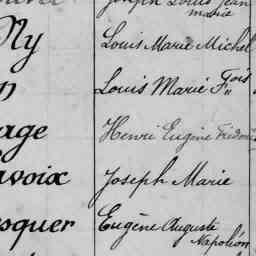 Joseph Louis Jean
Marie
Ny Louis Marie Michel
Louis Marie Fçois
age Henri Eugène
avoix Joseph Marie
squer Eugène Auguste
Napoléon